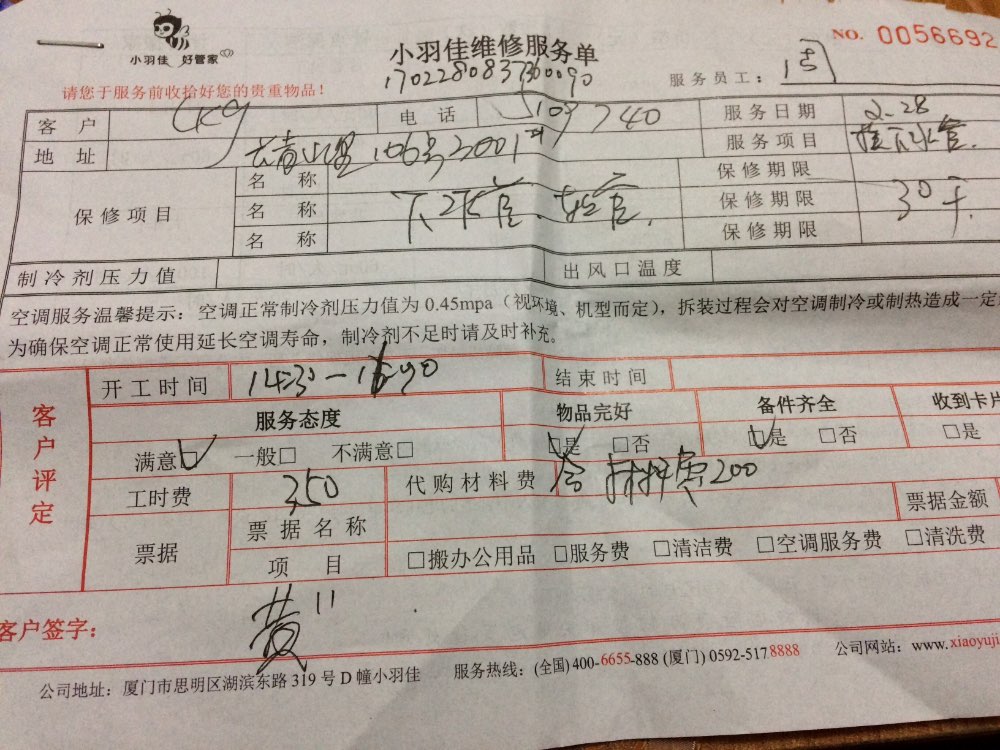 小羽佳 好管家
小羽佳维修服务单
NO. 0056692
请您于服务前收拾好您的贵重物品!
服务员工:
客户
电话 740
服务日期 2.28
地址 106号2001
服务项目
保修项目 名称 下水管 保修期限
名称 保修期限 30
名称 保修期限
制冷剂压力值 出风口温度
空调服务温馨提示:空调正常制冷剂压力值为 0.45mpa(视环境、机型而定),拆装过程会对空调制冷或制热造成一定
为确保空调正常使用延长空调寿命,制冷剂不足时请及时补充。
客户评定
开工时间 14:30 结束时间
服务态度 物品完好 备件齐全 收到卡片
满意☑ 一般□ 不满意□ ☑是 □否 ☑是 □否 □是
工时费 350 代购材料费 含材料费200
票据 票据名称 票据金额
项目 □搬办公用品 □服务费 □清洁费 □空调服务费 □清洗费
客户签字: 黄
公司地址:厦门市思明区湖滨东路 319 号 D 幢小羽佳 服务热线:(全国) 400-6655-888 (厦门) 0592-517 8888 公司网站:www.xiaoyuji